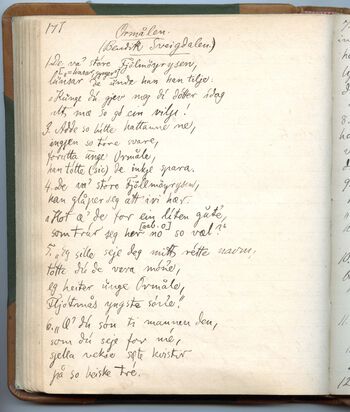 177
Ormålen.
(Bendik Sveigdalen)
1. De va' store Fjöllmöyrysen,
han han telje:
"Kunge du gjev meg di dotter idag
itt, mæ so god ein vilje!
so lötte hattanne ne,
ingjen so töre svare,
forutta unge Ormåle,
han totte (sic) de inkje spara.
4. De va' store Fjöllmöyrysen,
han glåper seg att ivi hær:
"Hot æ' de for ein liten gute,
som trur seg her no so væl?"
5. "Eg sille seje deg mitt rette navn,
totte du de vara möne,
eg heiter unge Ormåle,
yngste sone."
6. "Æ' du son ti mannen den,
som du seje for me,
sjella vekse söte kvister
på so beiske tre.